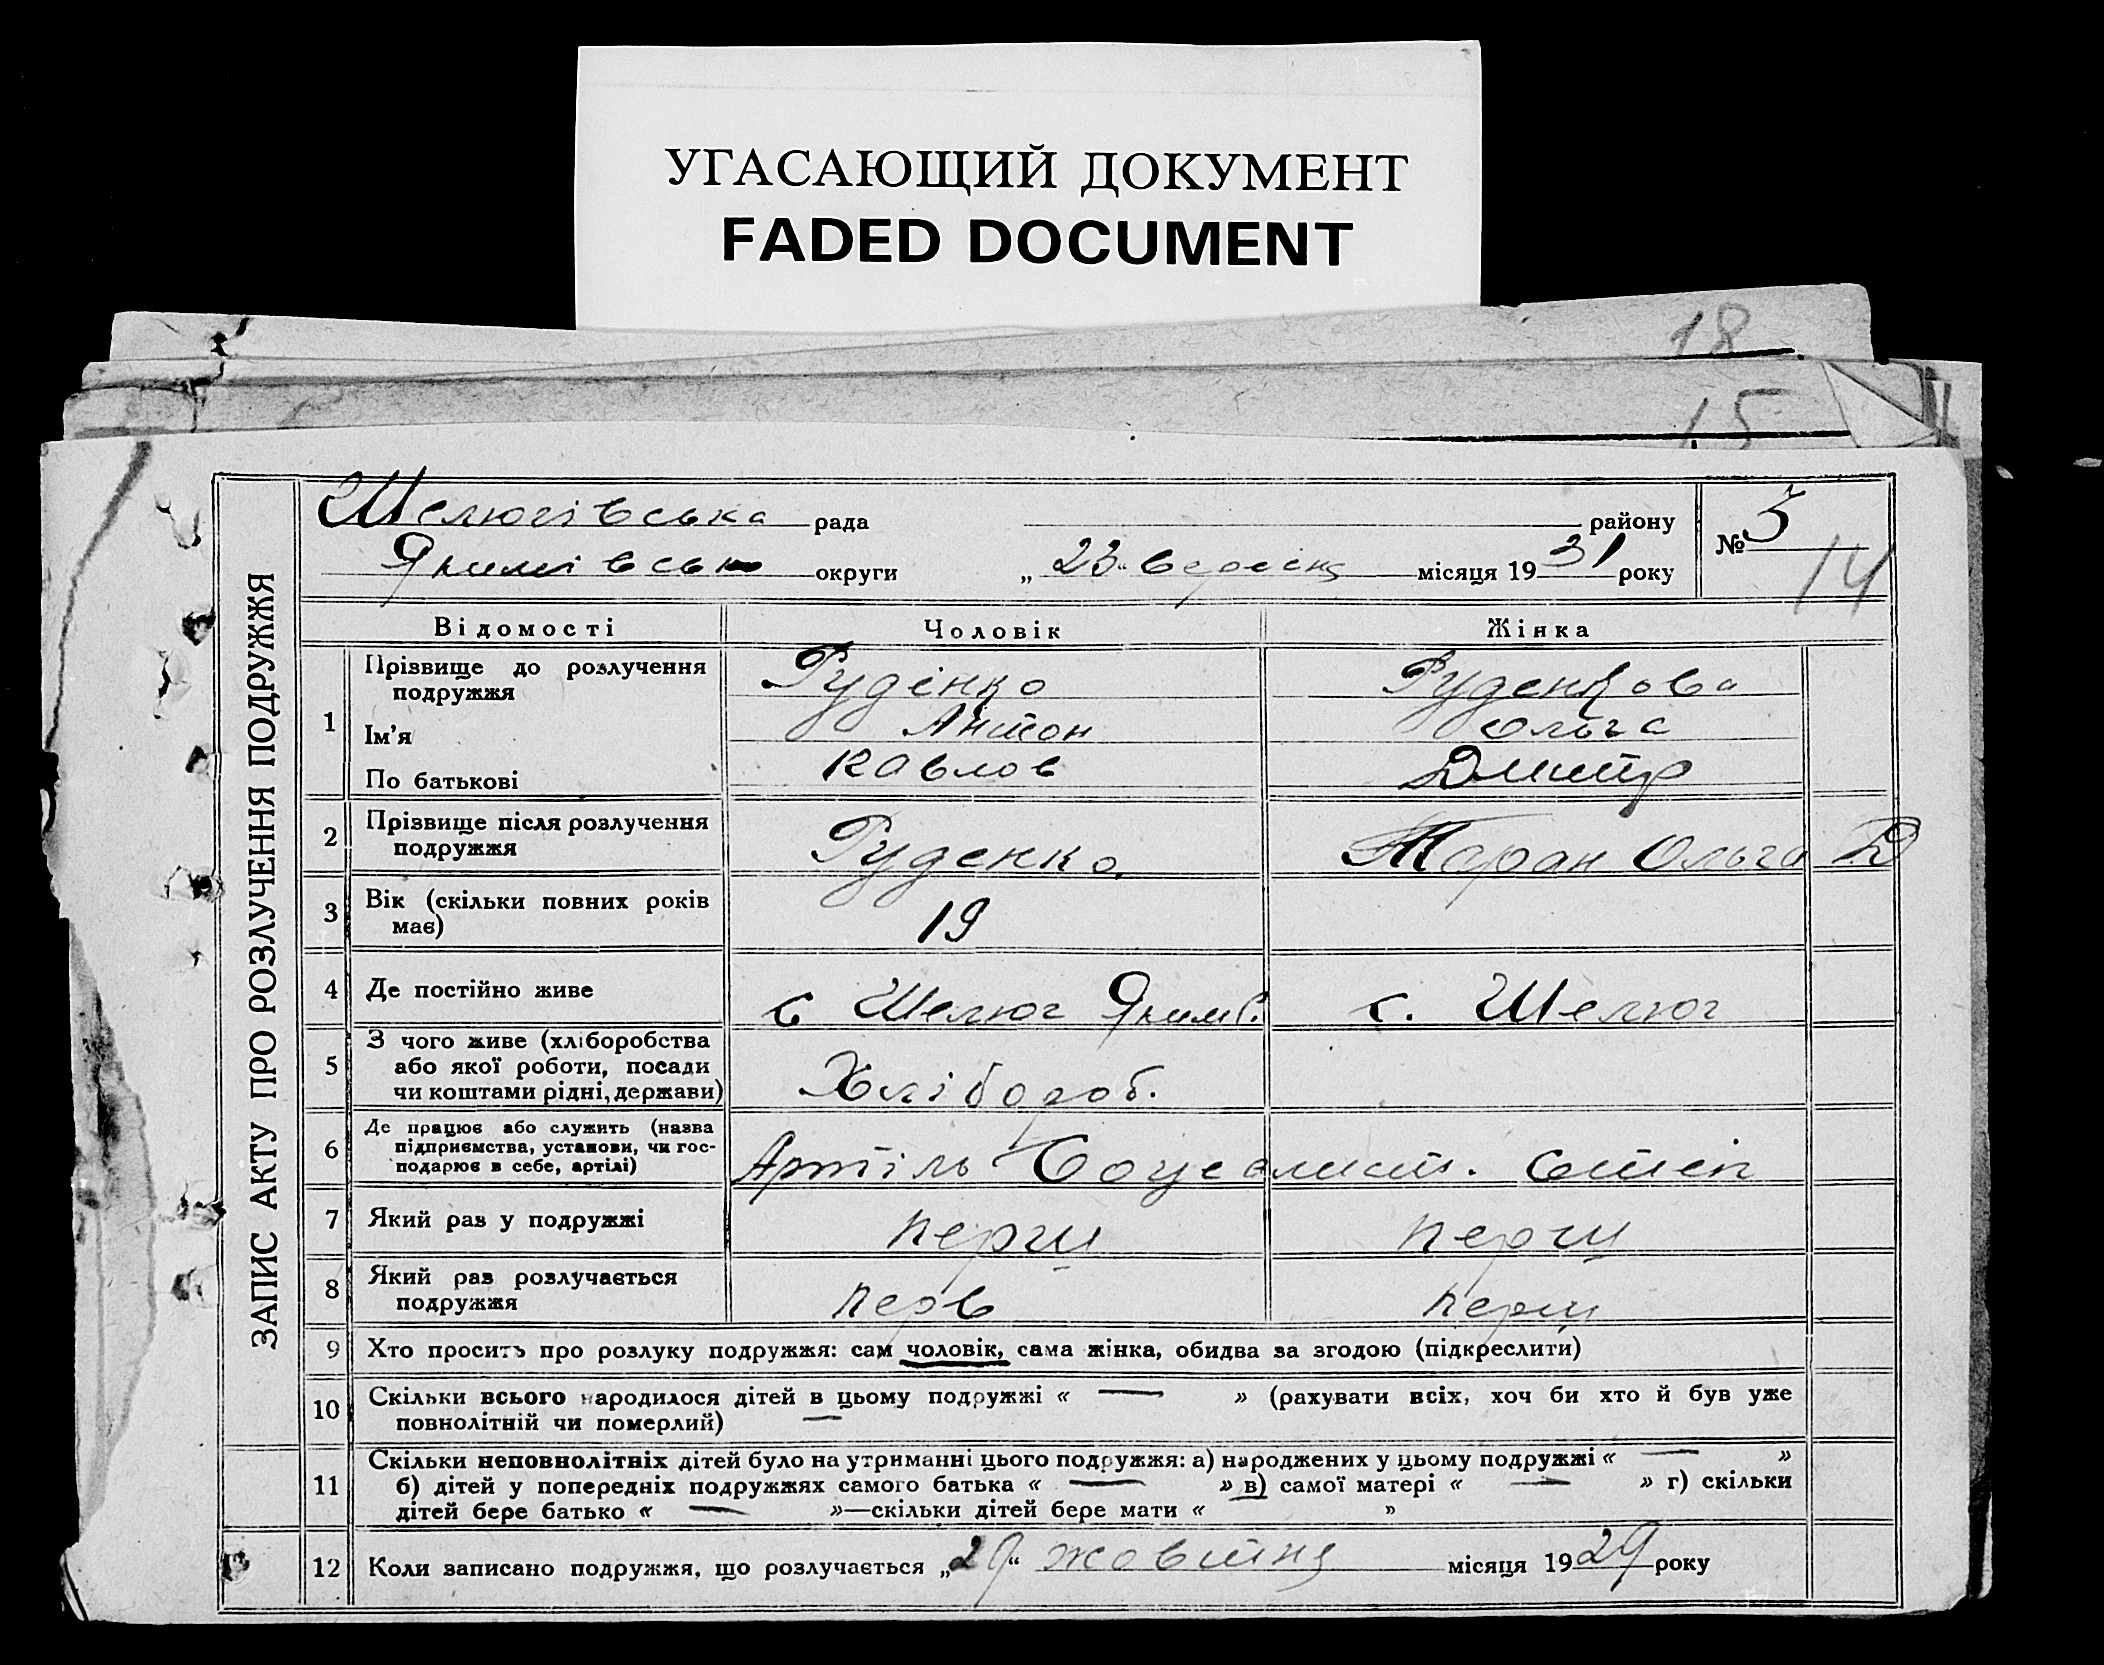 УГАСАЮЩИЙ ДОКУМЕНТ
FADED DOCUMENT
18
15
ЗАПИС АКТУ ПРО РОЗЛУЧЕННЯ ПОДРУЖЖЯ
Шелюгівська рада району
№ 3
14
Якимівськ округи „ 23 " вересня місяця 1931 року
Відомості Чоловік Жінка
1 Прізвище до розлучення подружжя Руденко Руденкова
Ім'я Антон Ольга
По батькові Павлов Дмитр
2 Прізвище після розлучення подружжя Руденко Таран Ольга Д
3 Вік (скільки повних років має) 19
4 Де постійно живе с Шелюг Яким. с. Шелюг
5 З чого живе (хліборобства або якої роботи, посади чи коштами рідні, держави) Хлібороб.
6 Де працює або служить (назва підприємства, установи, чи господарює в себе, артілі) Артіль Соцеалист. степ
7 Який раз у подружжі перш перш
8 Який раз розлучається подружжя перв перш
9 Хто просить про розлуку подружжя: сам чоловік, сама жінка, обидва за згодою (підкреслити)
10 Скільки всього народилося дітей в цьому подружжі « — » (рахувати всіх, хоч би хто й був уже
повнолітній чи померлий)
11 Скільки неповнолітніх дітей було на утриманні цього подружжя: а) народжених у цьому подружжі « — »
б) дітей у попередніх подружжях самого батька « — » в) самої матері « — » г) скільки
дітей бере батько « — »—скільки дітей бере мати « »
12 Коли записано подружжя, що розлучається „29" жовтня місяця 1929 року